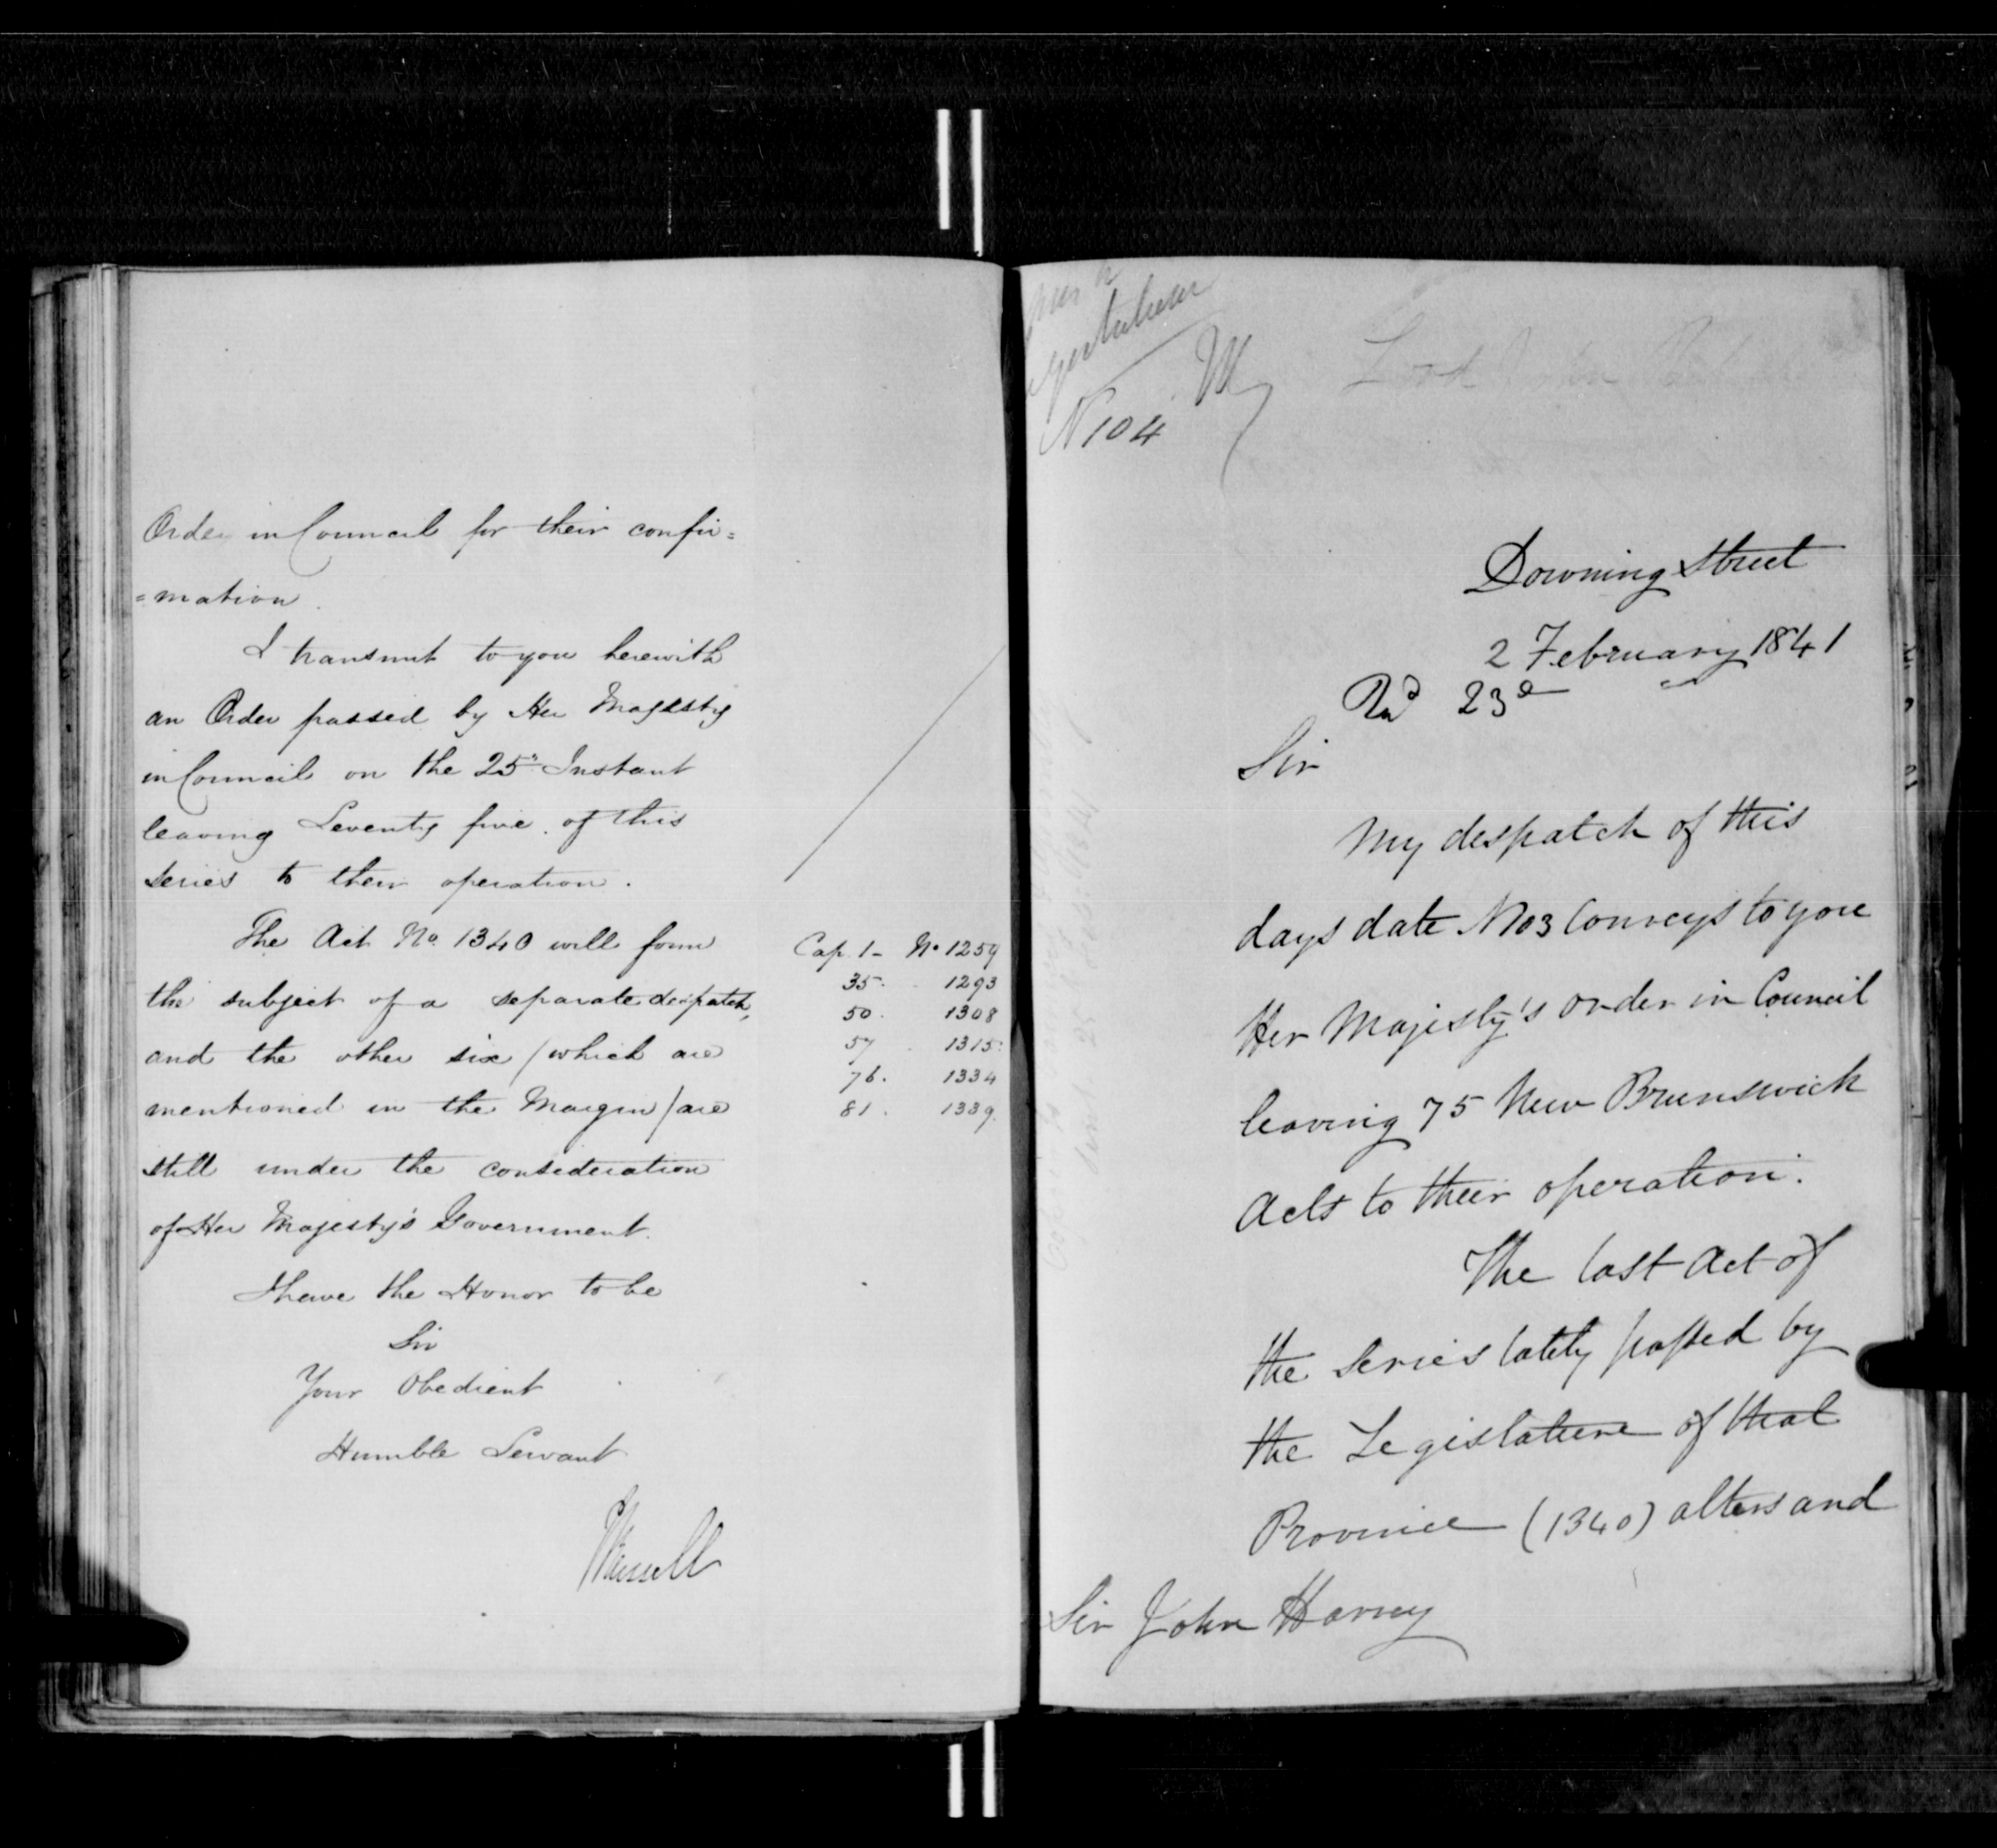 Order in Council for their confir=
=mation.
I transmit to you herewith
an Order passed by Her Majesty
in Council on the 25th Instant
leaving Seventy five of this
series to their operation.
The Act No. 1340 will form
the subject of a separate despatch,
and the other six / which are
mentioned in the Margin / are
still under the consideration
of Her Majesty's Government.
I have the Honor to be
Sir
Your Obedient
Humble Servant
JRussell
Cap. 1 - No 1259
35. 1293
50. 1308
57 1315.
76. 1334
81. 1339.
N 104
Downing Street
2 February 1841
Recd 23d
Sir
My despatch of this
days date N 103 Conveys to you
Her Majesty's order in Council
leaving 75 New Brunswick
Acts to their operation.
The last Act of
the Series lately passed by
the Legislature of that
Province (1340) alters and
Sir John Harvey